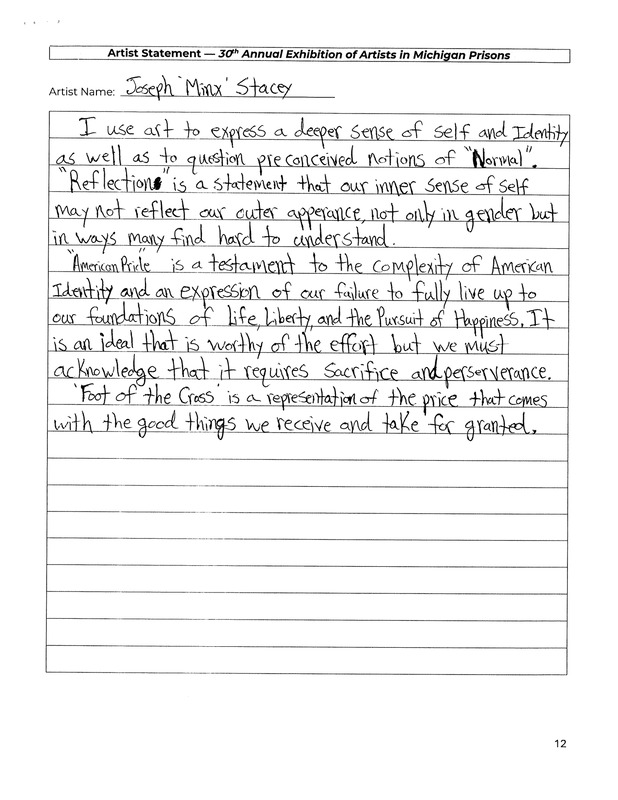 Artist Statement — 30th Annual Exhibition of Artists in Michigan Prisons
Artist Name: Joseph 'Minx' Stacey
I use art to express a deeper sense of self and Identity
as well as to question preconceived notions of "Normal".
"Reflections" is a statement that our inner sense of self
may not reflect our outer apperance, not only in gender but
in ways many find hard to understand.
"American Pride" is a testament to the complexity of American
Identity and an expression of our failure to fully live up to
our foundations of Life, Liberty, and the Pursuit of Happiness. It
is an ideal that is worthy of the effort but we must
acknowledge that it requires Sacrifice and perserverance.
'Foot of the Cross' is a representation of the price that comes
with the good things we receive and take for granted.
12